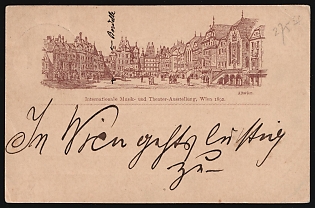 Internationale Musik- und Theater-Ausstellung, Wien 1892.
In Wien gehts lustig
zu